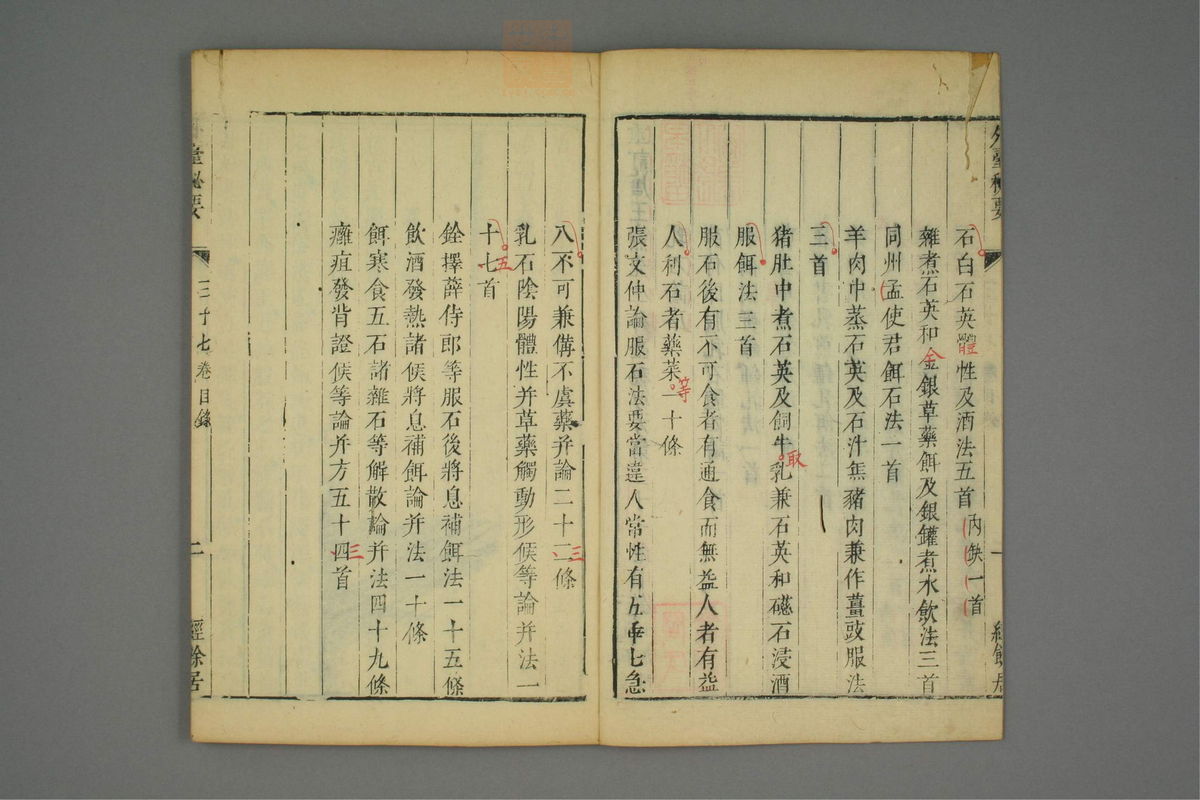 外臺秘要
一
經餘居
石白石英體性及酒法五首內缺一首
雜煮石英和金銀草藥餌及銀罐煮水飲法三首
同州孟使君餌石法一首
羊肉中蒸石英及石汁無豬肉兼作薑豉服法
三首
猪肚中煮石英及飼牛取乳兼石英和磁石浸酒
服餌法三首
服石後有不可食者有通食而無益人者有益
人利石者藥菜等一十條
張文仲論服石法要當違人常性有五乖七急
八不可兼備不虞藥并論二十二條
三
乳石陰陽體性并草藥觸動形候等論并法一
十七首
五
銓擇薛侍郎等服石後將息補餌法一十五條
飲酒發熱諸候將息補餌論并法一十條
餌寒食五石諸雜石等解散論并法四十九條
癰疽發背證候等論并方五十四首
三
臺秘要
三十七卷目錄
二
經餘居